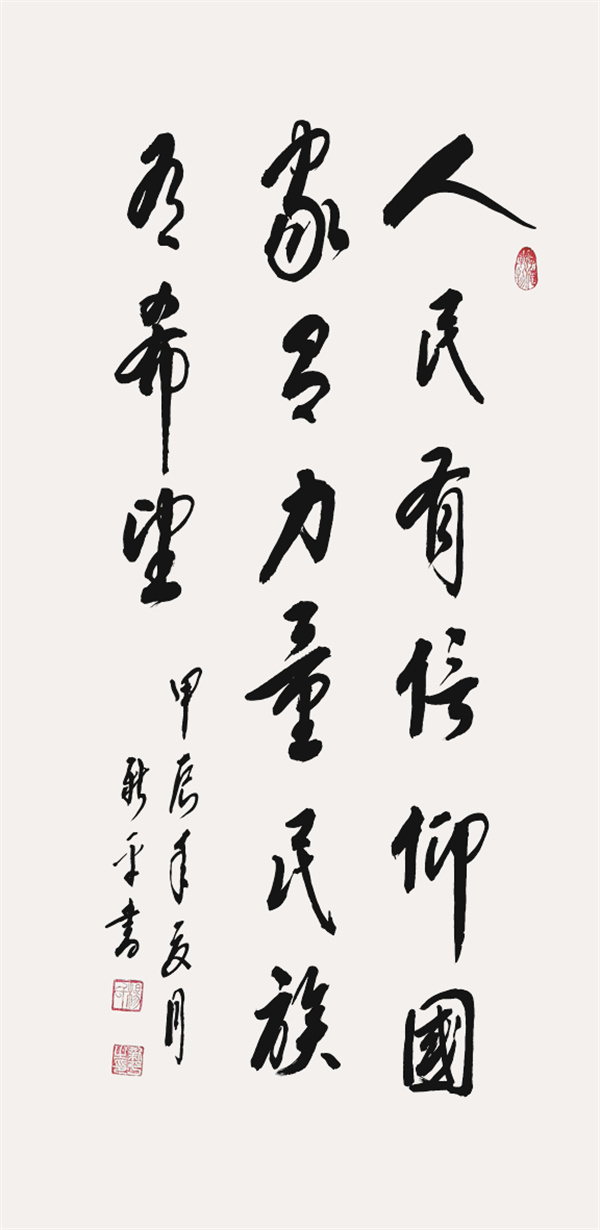 人民有信仰國
家有力量民族
有希望
甲辰年夏月
新平書